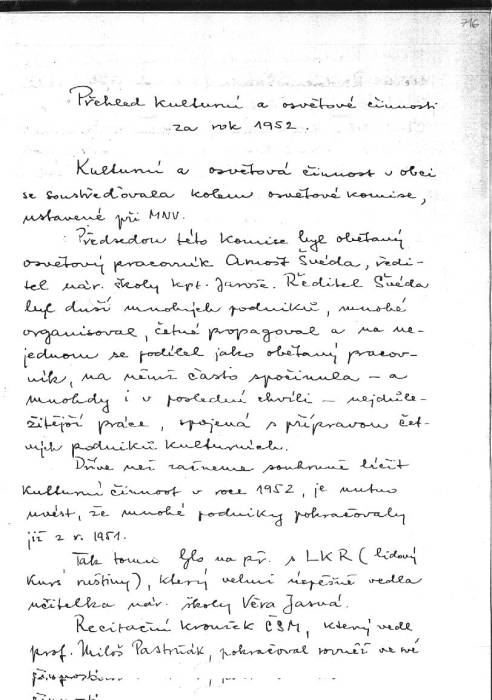 716
Přehled kulturní a osvětové činnosti
za rok 1952.
Kulturní a osvětová činnost v obci
se soustřeďovala kolem osvětové komise,
ustavené při MNV.
Předsedou této komise byl obětavý
osvětový pracovník Arnošt Švéda, ředi-
tel nár. školy kpt. Jaroše. Ředitel Švéda
byl duší mnohých podniků, mnohé
organisoval, četné propagoval a na ne-
jednom se podílel jako obětavý pracov-
ník, na němž často spočinula – a
mnohdy i v poslední chvíli – nejdůle-
žitější práce, spojená s přípravou čet-
ných podniků kulturních.
Dříve než začneme souhrnně líčit
kulturní činnost v roce 1952, je nutno
uvést, že mnohé podniky pokračovaly
již z r. 1951.
Tak tomu bylo na př. s LKR (lidový
kurs ruštiny), který velmi úspěšně vedla
učitelka nár. školy Věra Jarvá.
Recitační kroužek ČSM, který vedl
prof. Miloš Pastrňák, pokračoval rovněž ve své